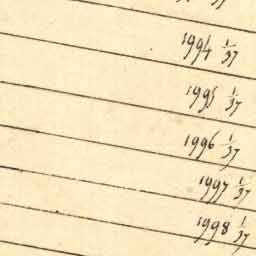 1994 1/37
1995 1/37
1996 1/37
1997 1/37
1998 1/37